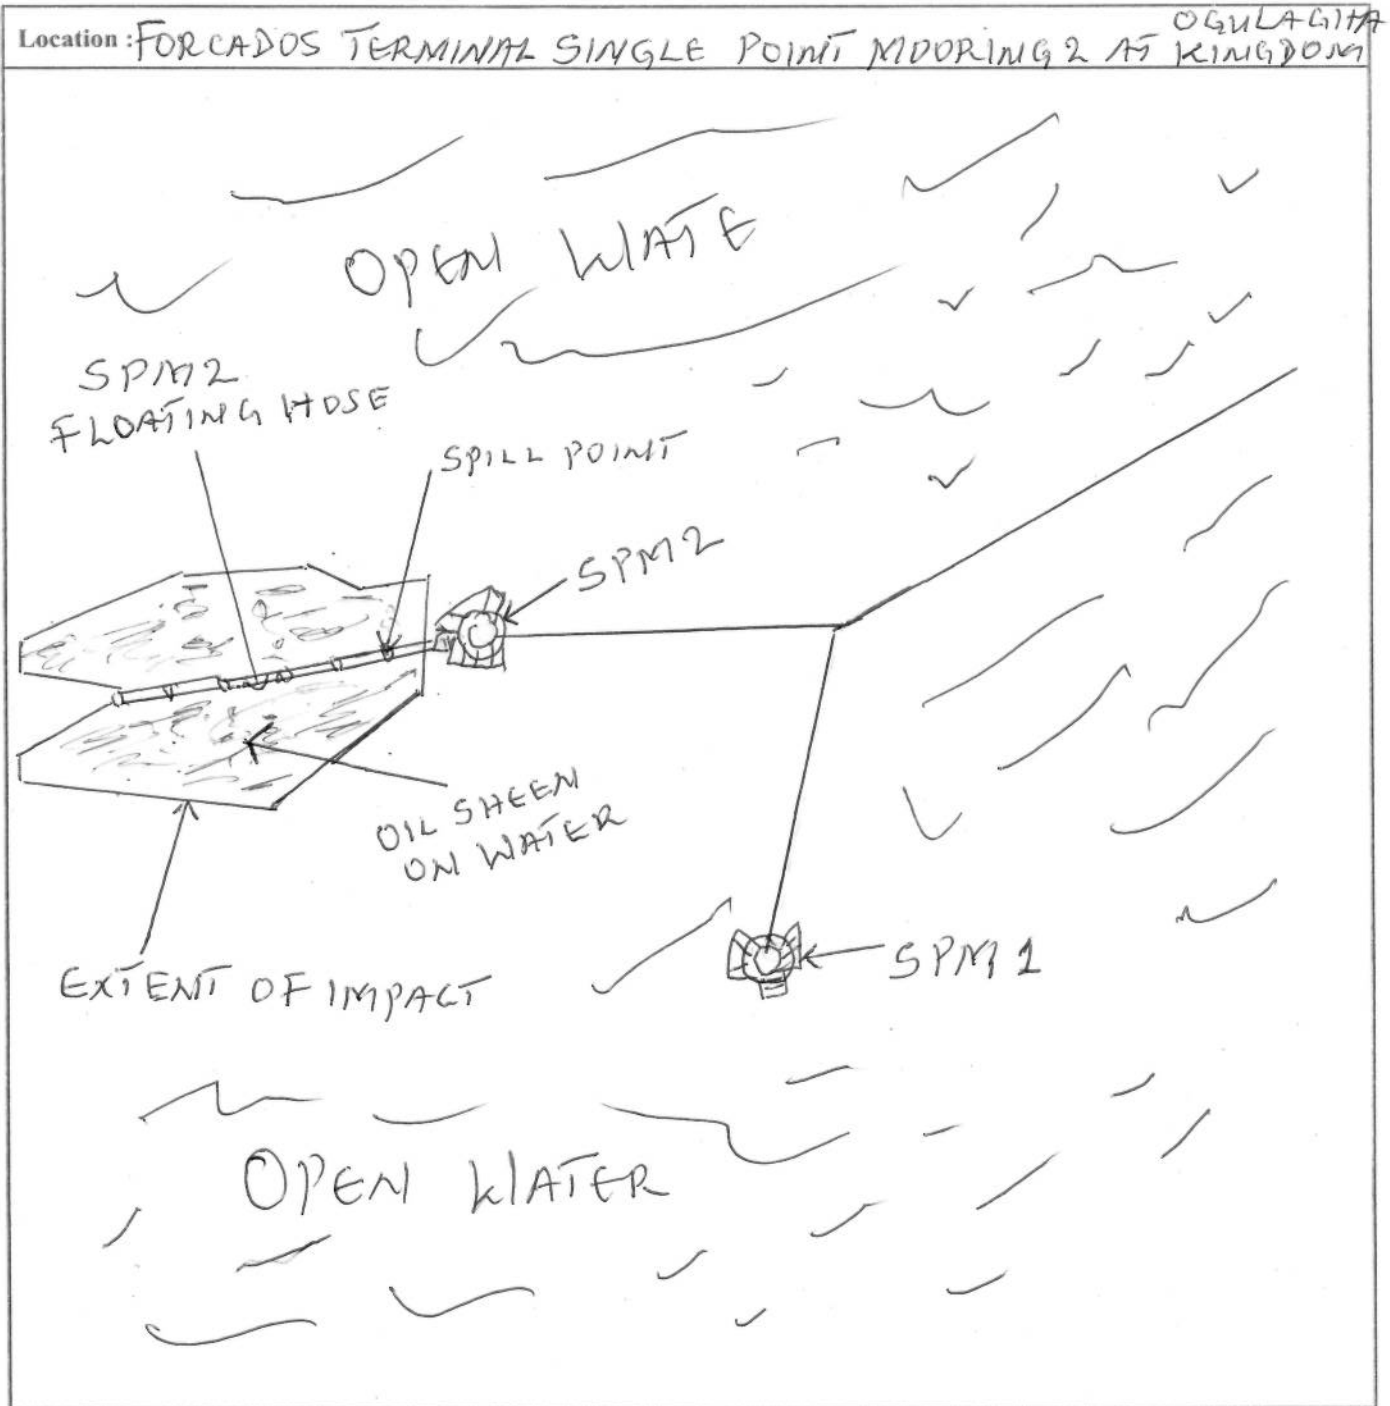 OGULAGHA
Location : FORCADOS TERMINAL SINGLE POINT MOORING 2 AT KINGDOM
OPEN WATE
SPM2
FLOATING HOSE
SPILL POINT
SPM2
OIL SHEEN
ON WATER
EXTENT OF IMPACT
SPM 1
OPEN WATER